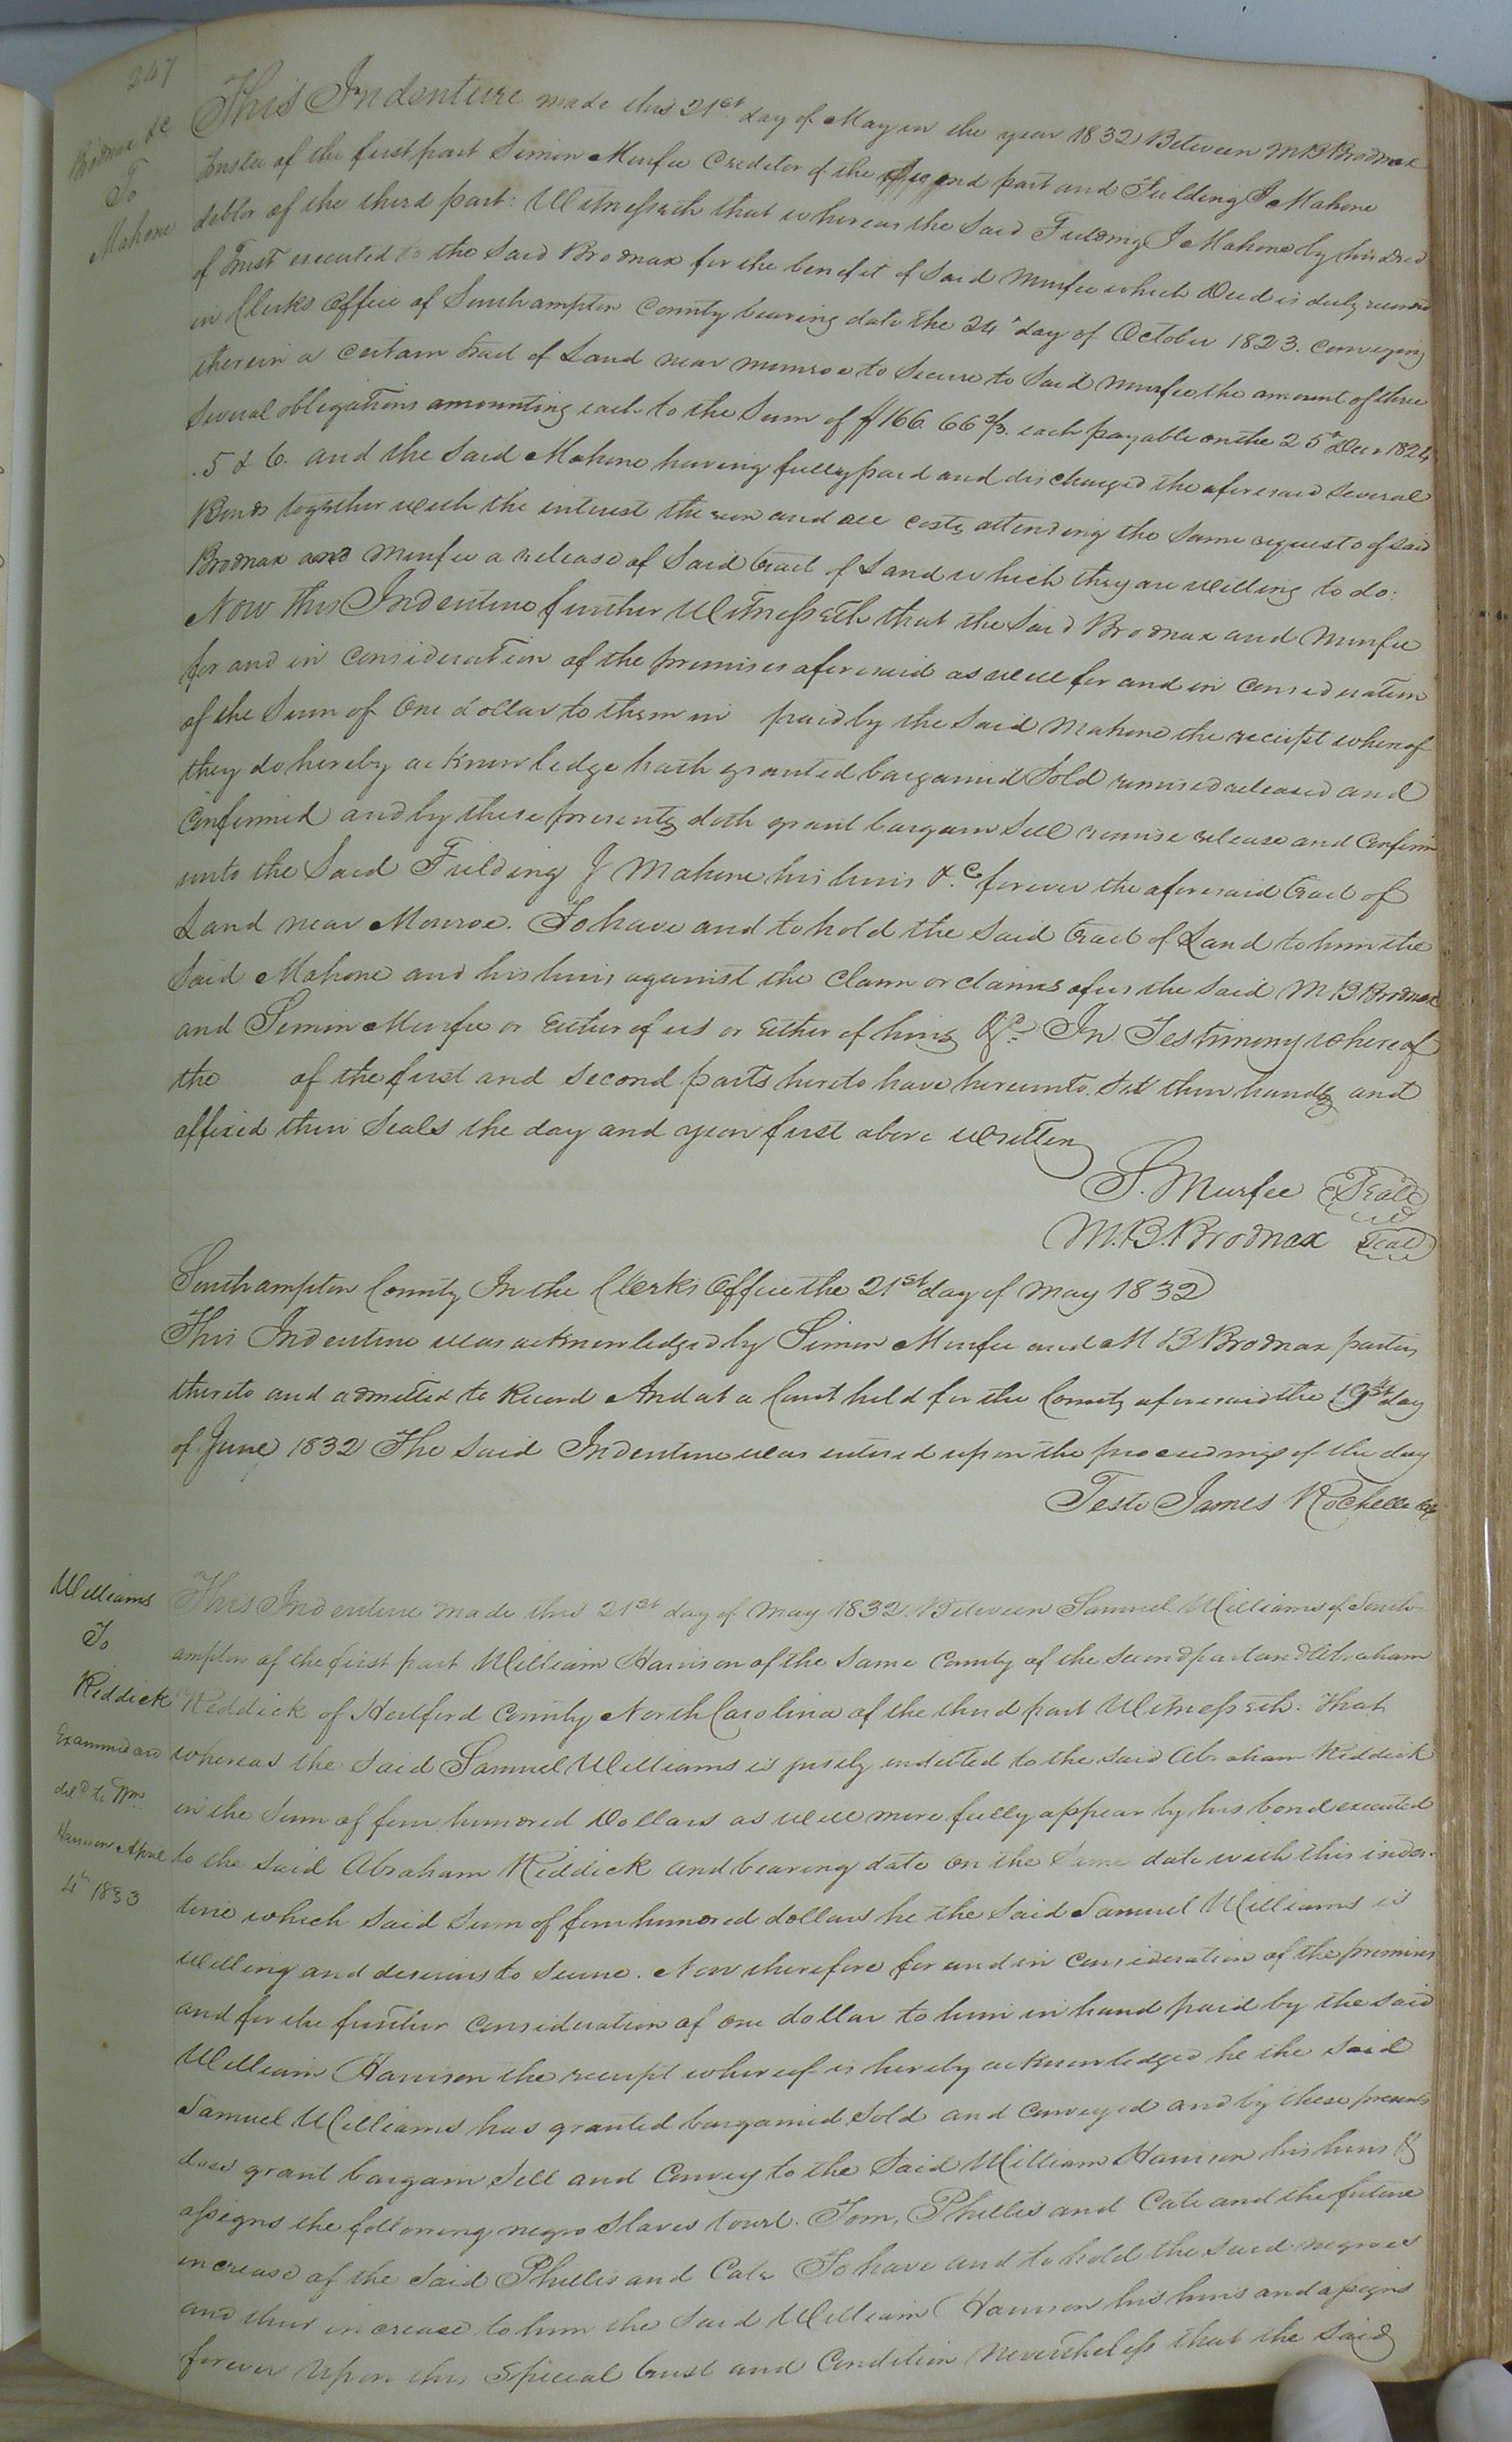 247
Brodnax &c
To
Mahone
This Indenture made this 21st day of May in the year 1832 Between M B Brodnax
Trustee of the first part Simon Murfee Creditor of the Second part and Fielding J Mahone
debtor of the third part: Witnesseth that whereas the Said Fielding J Mahone by his deed
of Trust executed to the Said Brodnax for the benefit of Said Murfee which Deed is duly recorded
in Clerks Office of Southampton County bearing date the 24th day of October 1823. conveying
therein a certain tract of Land near Munroe to Secure to Said Murfee the amount of three
Several obligations amounting each to the Sum of $166. 66 2/3. each payable on the 25th Decr 1824
.5 & 6. and the Said Mahone having fully paid and discharged the aforesaid Several
Bonds together with the interest thereon and all costs attending the Same requests of said
Brodnax and Murfee a release of Said tract of Land which they are willing to do:
Now this Indenture further Witnesseth that the Said Brodnax and Murfee
for and in Consideration of the premises aforesaid as well for and in Consideration
of the Sum of One dollar to them in paid by the Said Mahone the receipt whereof
they do hereby acknowledge hath granted bargained Sold remised released and
Confirmed and by these presents doth grant bargain Sell remise release and Confirm
unto the Said Fielding J Mahone his heirs &c forever the aforesaid tract of
Land near Monroe. To have and to hold the Said tract of Land to him the
Said Mahone and his heirs against the Claim or claims of us the Said M B Brodnax
and Simon Murfee or Either of us or Either of heirs &c. In Testimony whereof
the of the first and Second parts hereto have hereunto Set their hands and
affixed their Seals the day and year first above written
S. Murfee Seal
M. B. Brodnax Seal
Southampton County In the Clerks Office the 21st day of May 1832
This Indenture was acknowledged by Simon Murfee and M B Brodnax parties
thereto and admitted to Record And at a Court held for the County aforesaid the 19th day
of June 1832 The Said Indenture was entered upon the proceedings of the day
Teste James Rochelle
Williams
To
Riddick
Examined and
deld to Wm
Harrison April
4th 1833
This Indenture made this 21st day of May 1832. Between Samuel Williams of South-
ampton of the first part William Harrison of the Same County of the Second part and Abraham
Riddick of Hertford County North Carolina of the third part Witnesseth: that
whereas the Said Samuel Williams is justly indebted to the Said Abraham Riddick
in the Sum of four hundred Dollars as will more fully appear by his bond executed
to the Said Abraham Riddick and bearing date on the Same date with this inden-
ture which Said Sum of four hundred dollars he the Said Samuel Williams is
willing and desirous to Secure. Now therefore for and in Consideration of the premises
and for the further Consideration of one dollar to him in hand paid by the Said
William Harrison the receipt whereof is hereby acknowledged he the Said
Samuel Williams has granted bargained Sold and Conveyed and by these presents
does grant bargain Sell and Convey to the Said William Harrison his heirs &
assigns the following negro Slaves towit. Tom, Phillis and Cate and the future
increase of the Said Phillis and Cate To have and to hold the Said negroes
and their increase to him the Said William Harrison his heirs and assigns
forever Upon this Special trust and Condition Nevertheless that the Said